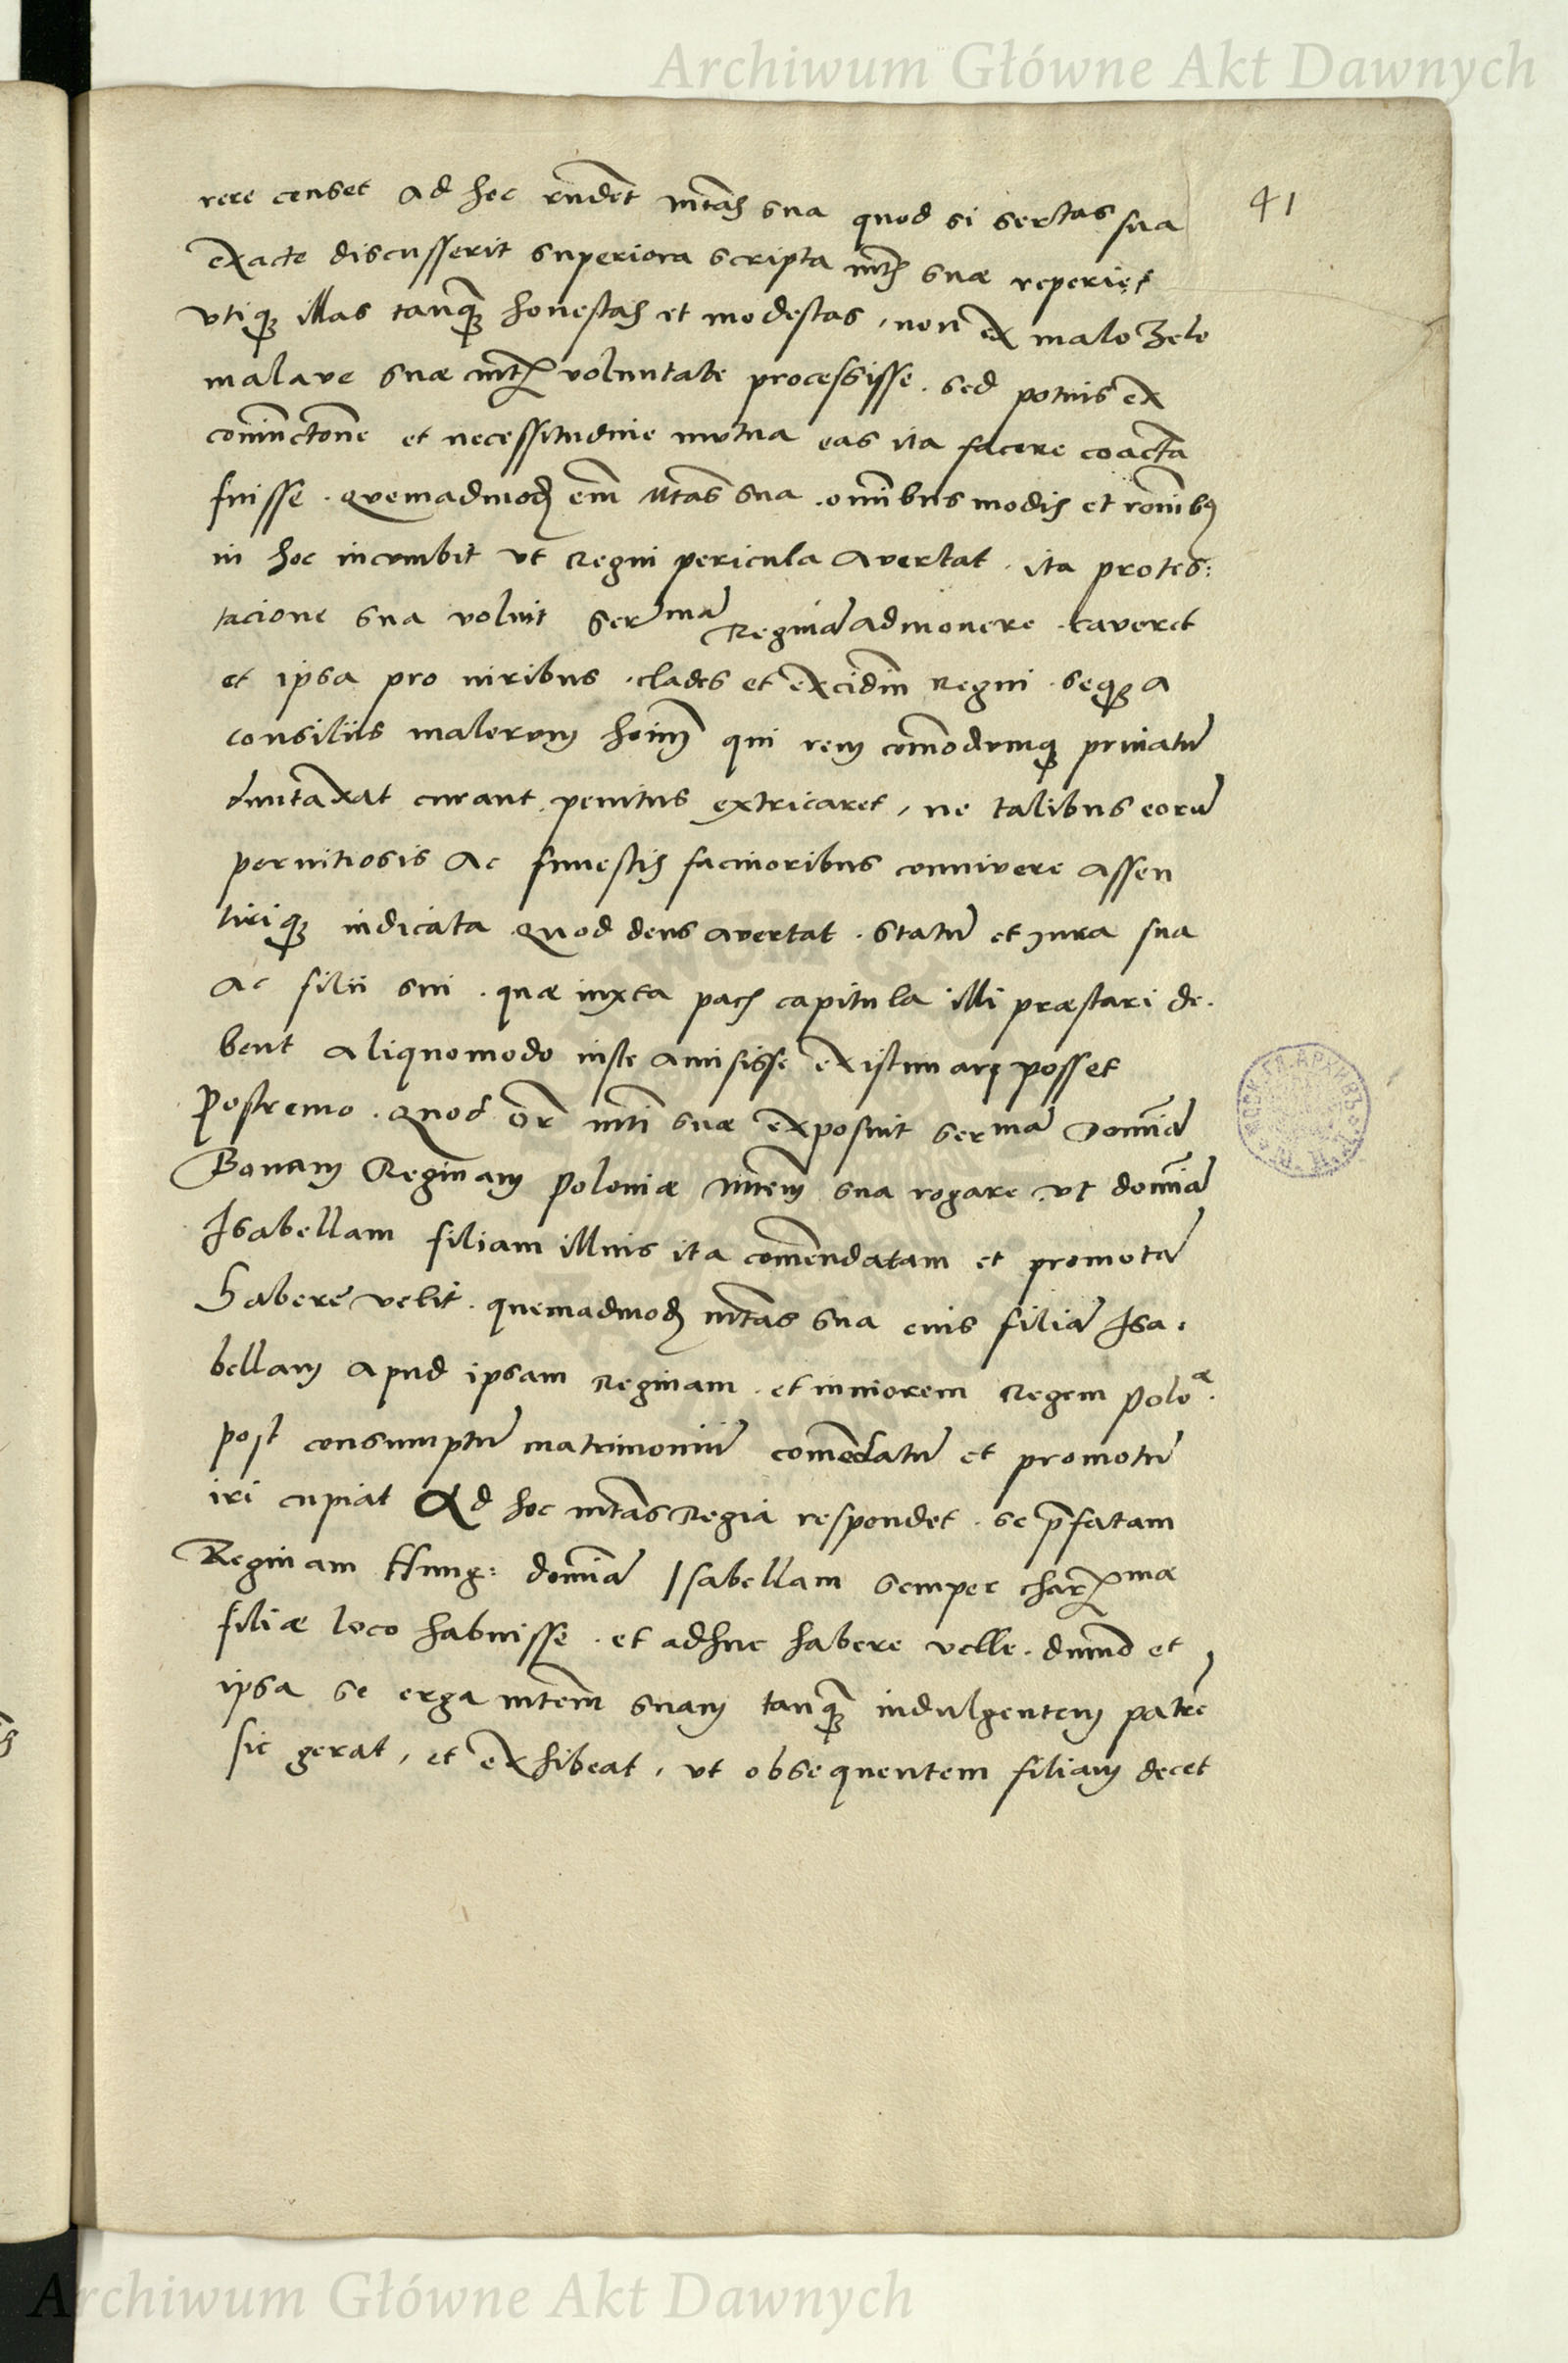 Archiwum Główne Akt Dawnych
41
rere censet Ad hec rndet mtas sua quod si sertas sua
exacte discusserit superiora scripta mtis suæ reperiet
vtiq3 illas tanq3 honestas et modestas, non ex malo zelo
malave suæ mtis voluntate processisse. sed potius ex
coniunctone et necessitudine mutua eas ita facere coacta
fuisse. quemadmod em Mtas sua. omnibus modis et ronib9
in hoc incumbit vt Regni pericula avertat. ita protes:
tacione sua voluit serma Reginã admonere. caveret
et ipsa pro viribus. clades et excidiũ Regni. seq3 a
consiliis malorum hoim qui rem comodumq3 privatũ
duntaxat curant. penitus extricaret, ne talibus eorũ
pernitiosis ac funestis facinoribus connivere assen
tiriq3 indicata quod deus avertat. statũ et jura sua
ac filii sui. quæ iuxta pacis capitula illi præstari de.
bent aliquomodo iuste amisisse existimari posset
Postremo. quod Or mti suæ exposuit sermã Dominã
Bonam Reginam Poloniæ Mtem sua rogare vt dominã
Isabellam filiam illius ita comendatam et promotã
habere velit. quemadmod mtas sua eius filiã Isa.
bellam apud ipsam Reginam. et iuniorem Regem Poloæ.
post consumptũ matrimoniũ comedatũ et promotũ
iri cupiat Ad hec mtas Regia respondet. se pfatam
Reginam Hung: dominã Isabellam semper charismæ
filiæ loco habuisse. et adhuc habere velle. dumõ et
ipsa se erga mtem suam tanq3 indulgentem patrẽ
sic gerat, et exhibeat, vt obsequentem filiam decet
Archiwum Główne Akt Dawnych